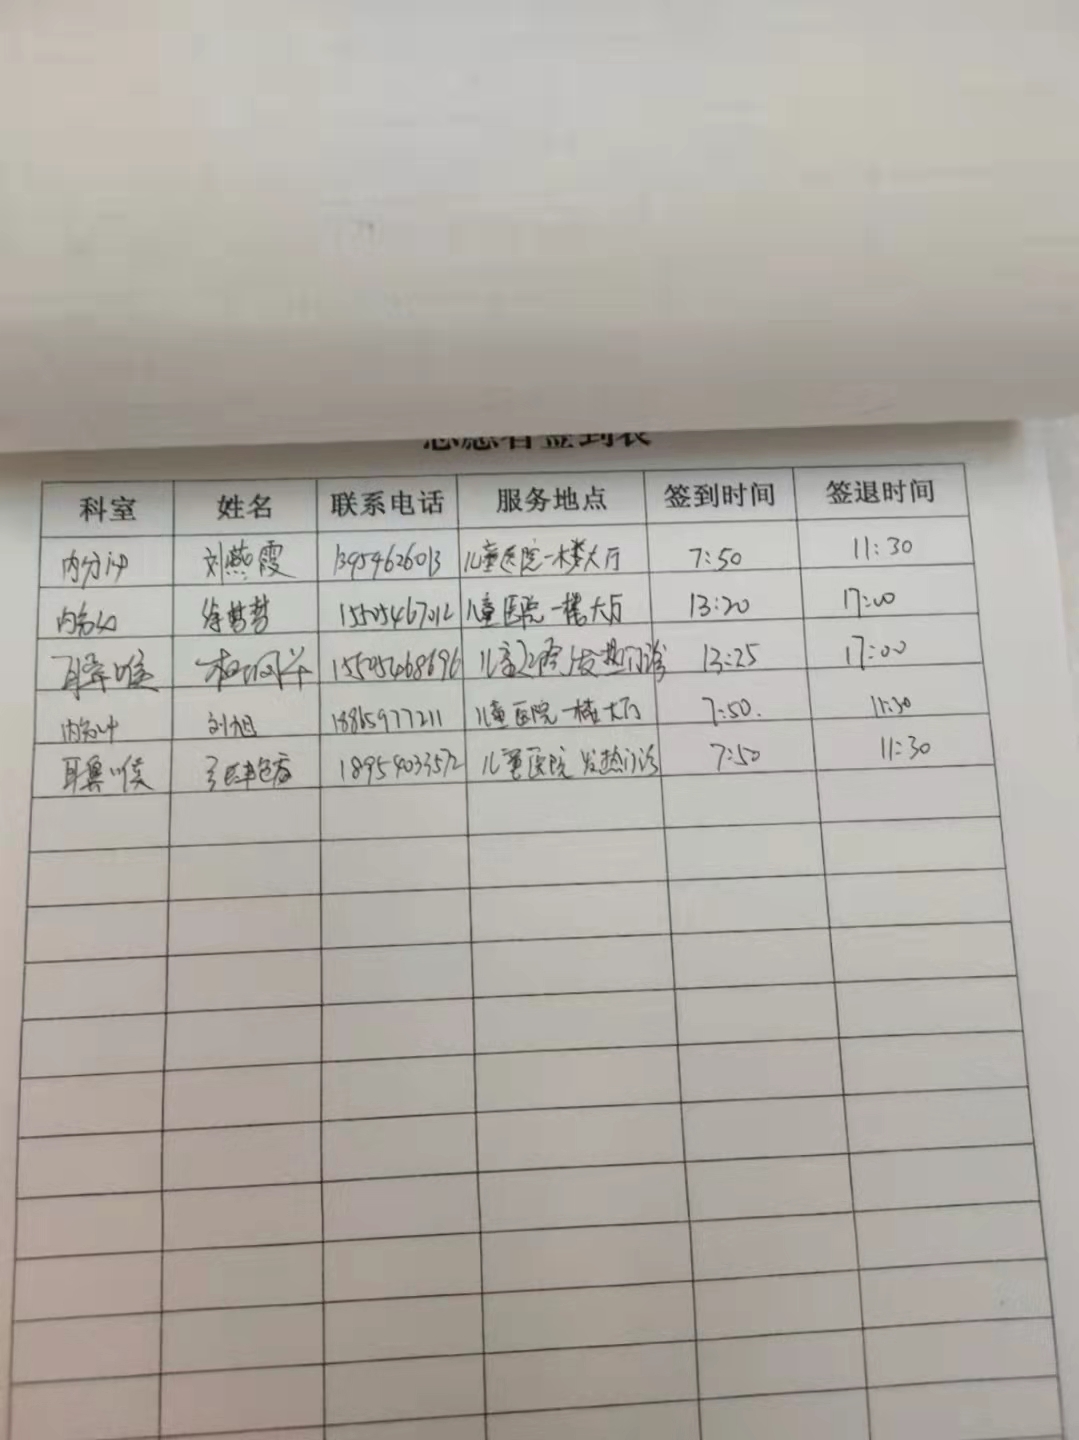 志愿者签到表
科室 姓名 联系电话 服务地点 签到时间 签退时间
内分泌 刘燕霞 13954626013 儿童医院一楼大厅 7:50 11:30
内分泌 徐哲哲 15505467012 儿童医院一楼大厅 13:20 17:00
耳鼻喉 15505468696 儿童医院发热门诊 13:25 17:00
内分泌 刘旭 18865977211 儿童医院一楼大厅 7:50. 11:30
耳鼻喉 18954033572 儿童医院发热门诊 7:50 11:30